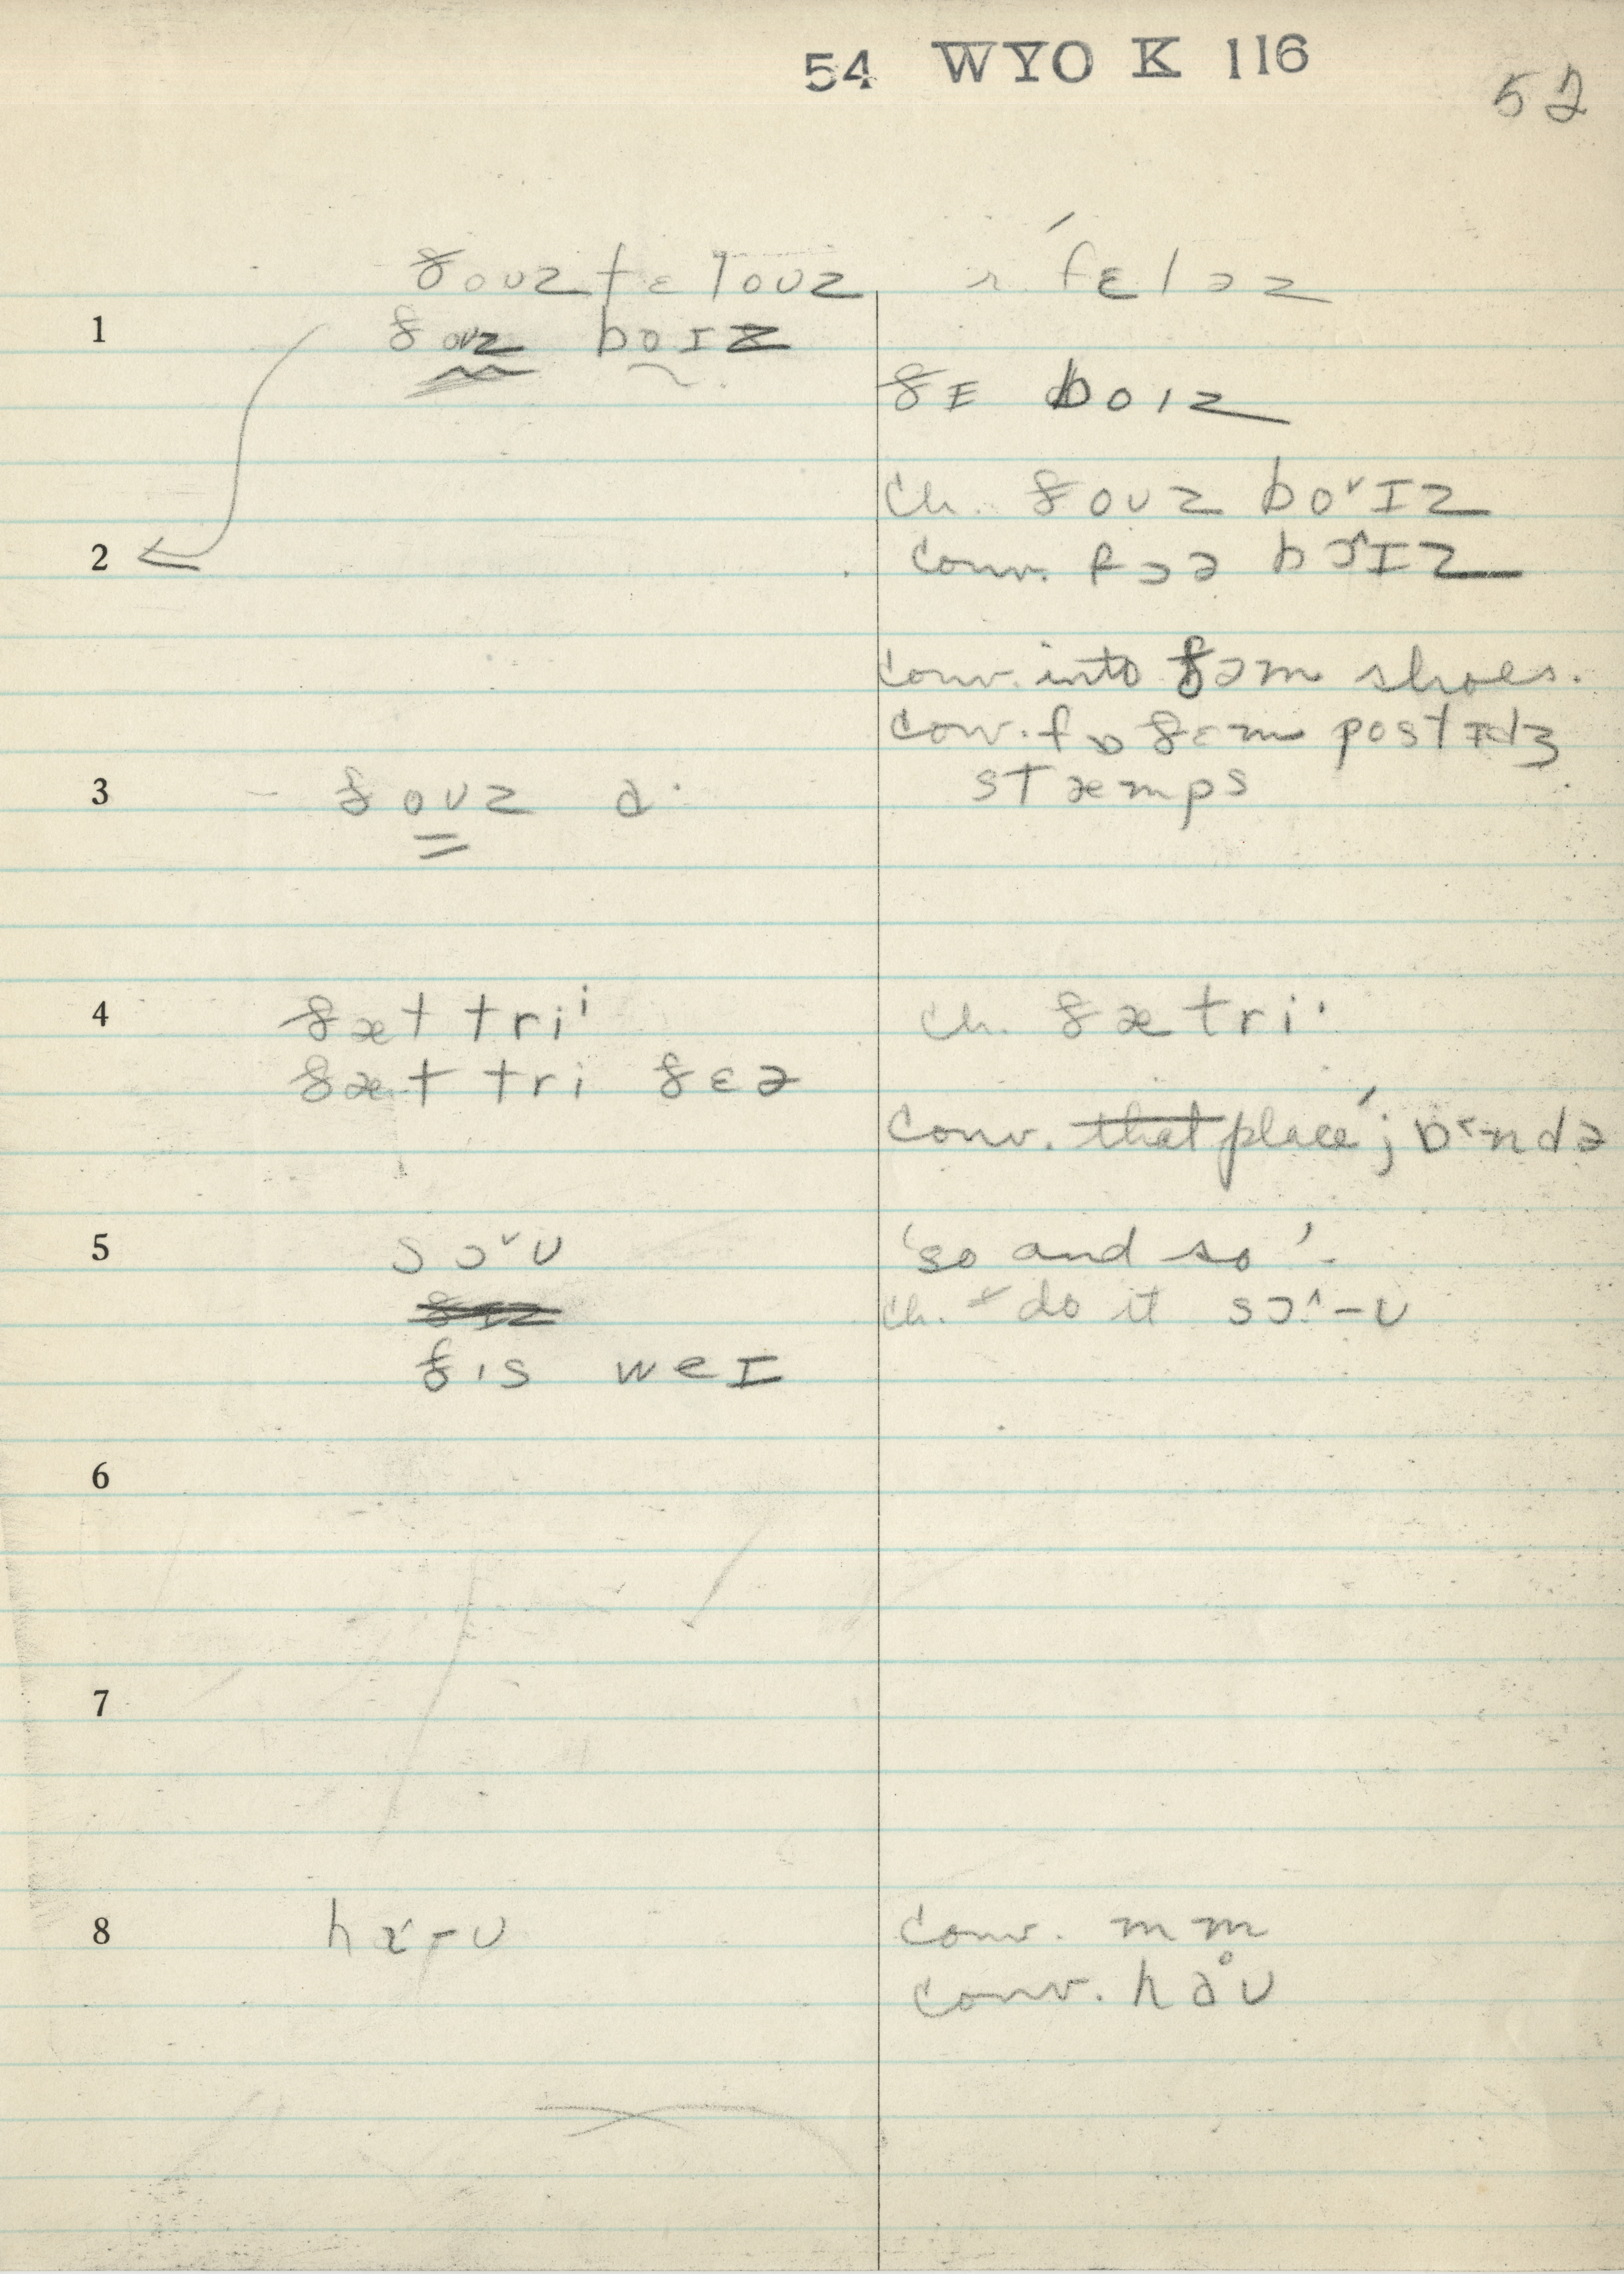 54 WYO K 116
52
ðoʊz fɛloʊz
r. ˊfɛləz
1 ðoʊz bɔɪz
ðɛ bɔɪz
ch. ðoʊz bo˅ɪz
2 conv. fɔə bɔ^ɪz
conv. into ðəm shoes.
conv. fɒ ðɛm postɪdʒ
stæmps
3 ðoʊz ə·
4 ðæt triⁱ
ch. ðæ tri·
ðæt tri ðɛə
conv. that place; bɪ˂ɒndə
5 sɔ˅ʊ
'so and so'-
ch. do it sɔ^-ʊ
ðɪs weɪ
6
7
8 ha-ʊ
conv. mm
conv. haʊ